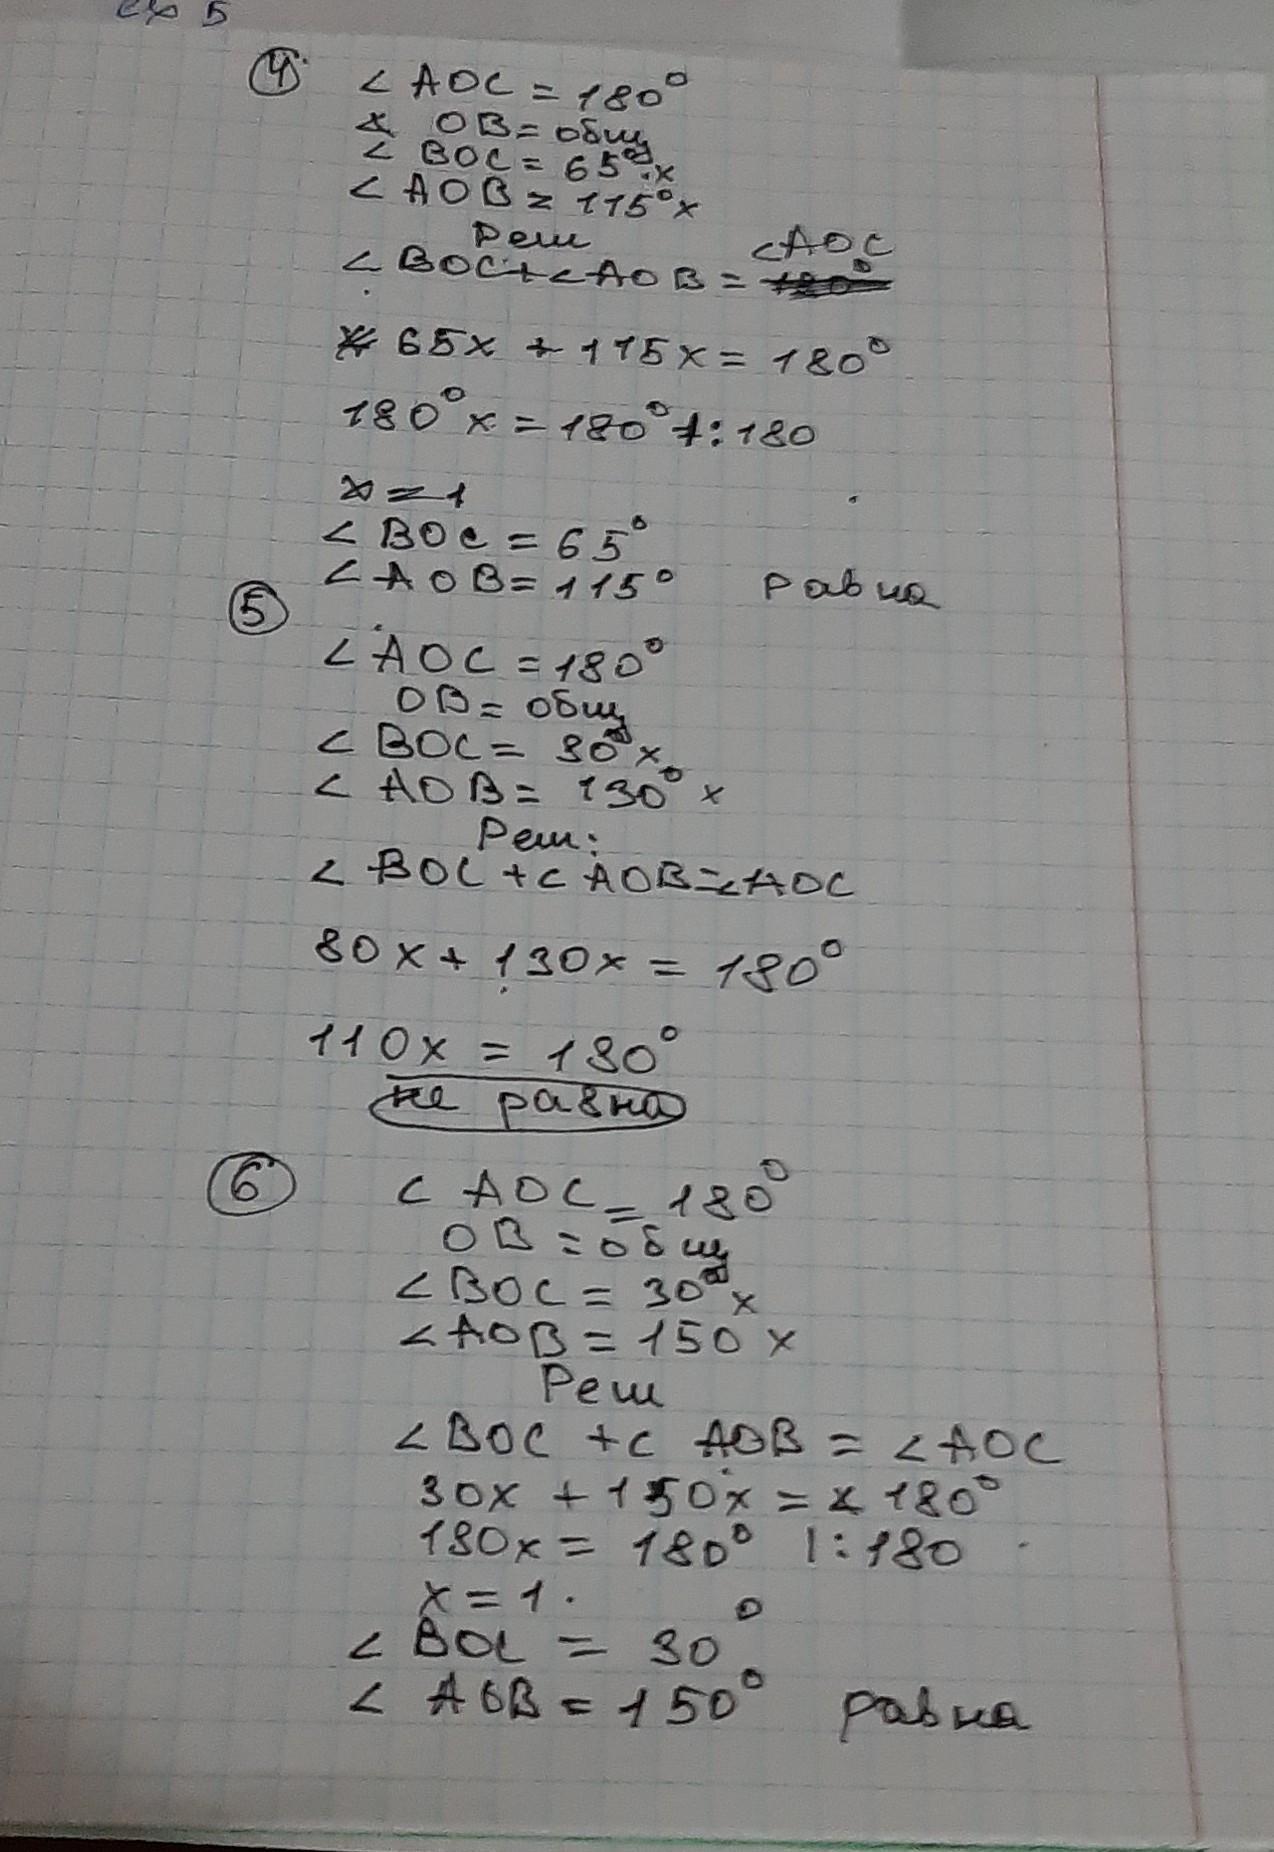 ④ < AOC = 180°
OB = общ
< BOC = 65° x
< AOB = 115° x
Реш
< BOC + < AOB = < AOC
65x + 115x = 180°
180° x = 180° /:180
x = 1
< BOC = 65°
< AOB = 115° равна
⑤
< AOC = 180°
OB = общ
< BOC = 30° x
< AOB = 130° x
Реш:
< BOC + < AOB = < AOC
80x + 130x = 180°
110x = 180°
не равна
⑥ < AOC = 180°
OB = общ
< BOC = 30° x
< AOB = 150 x
Реш
< BOC + < AOB = < AOC
30x + 150x = 180°
180x = 180° |:180
x = 1.
< BOC = 30°
< AOB = 150° равна